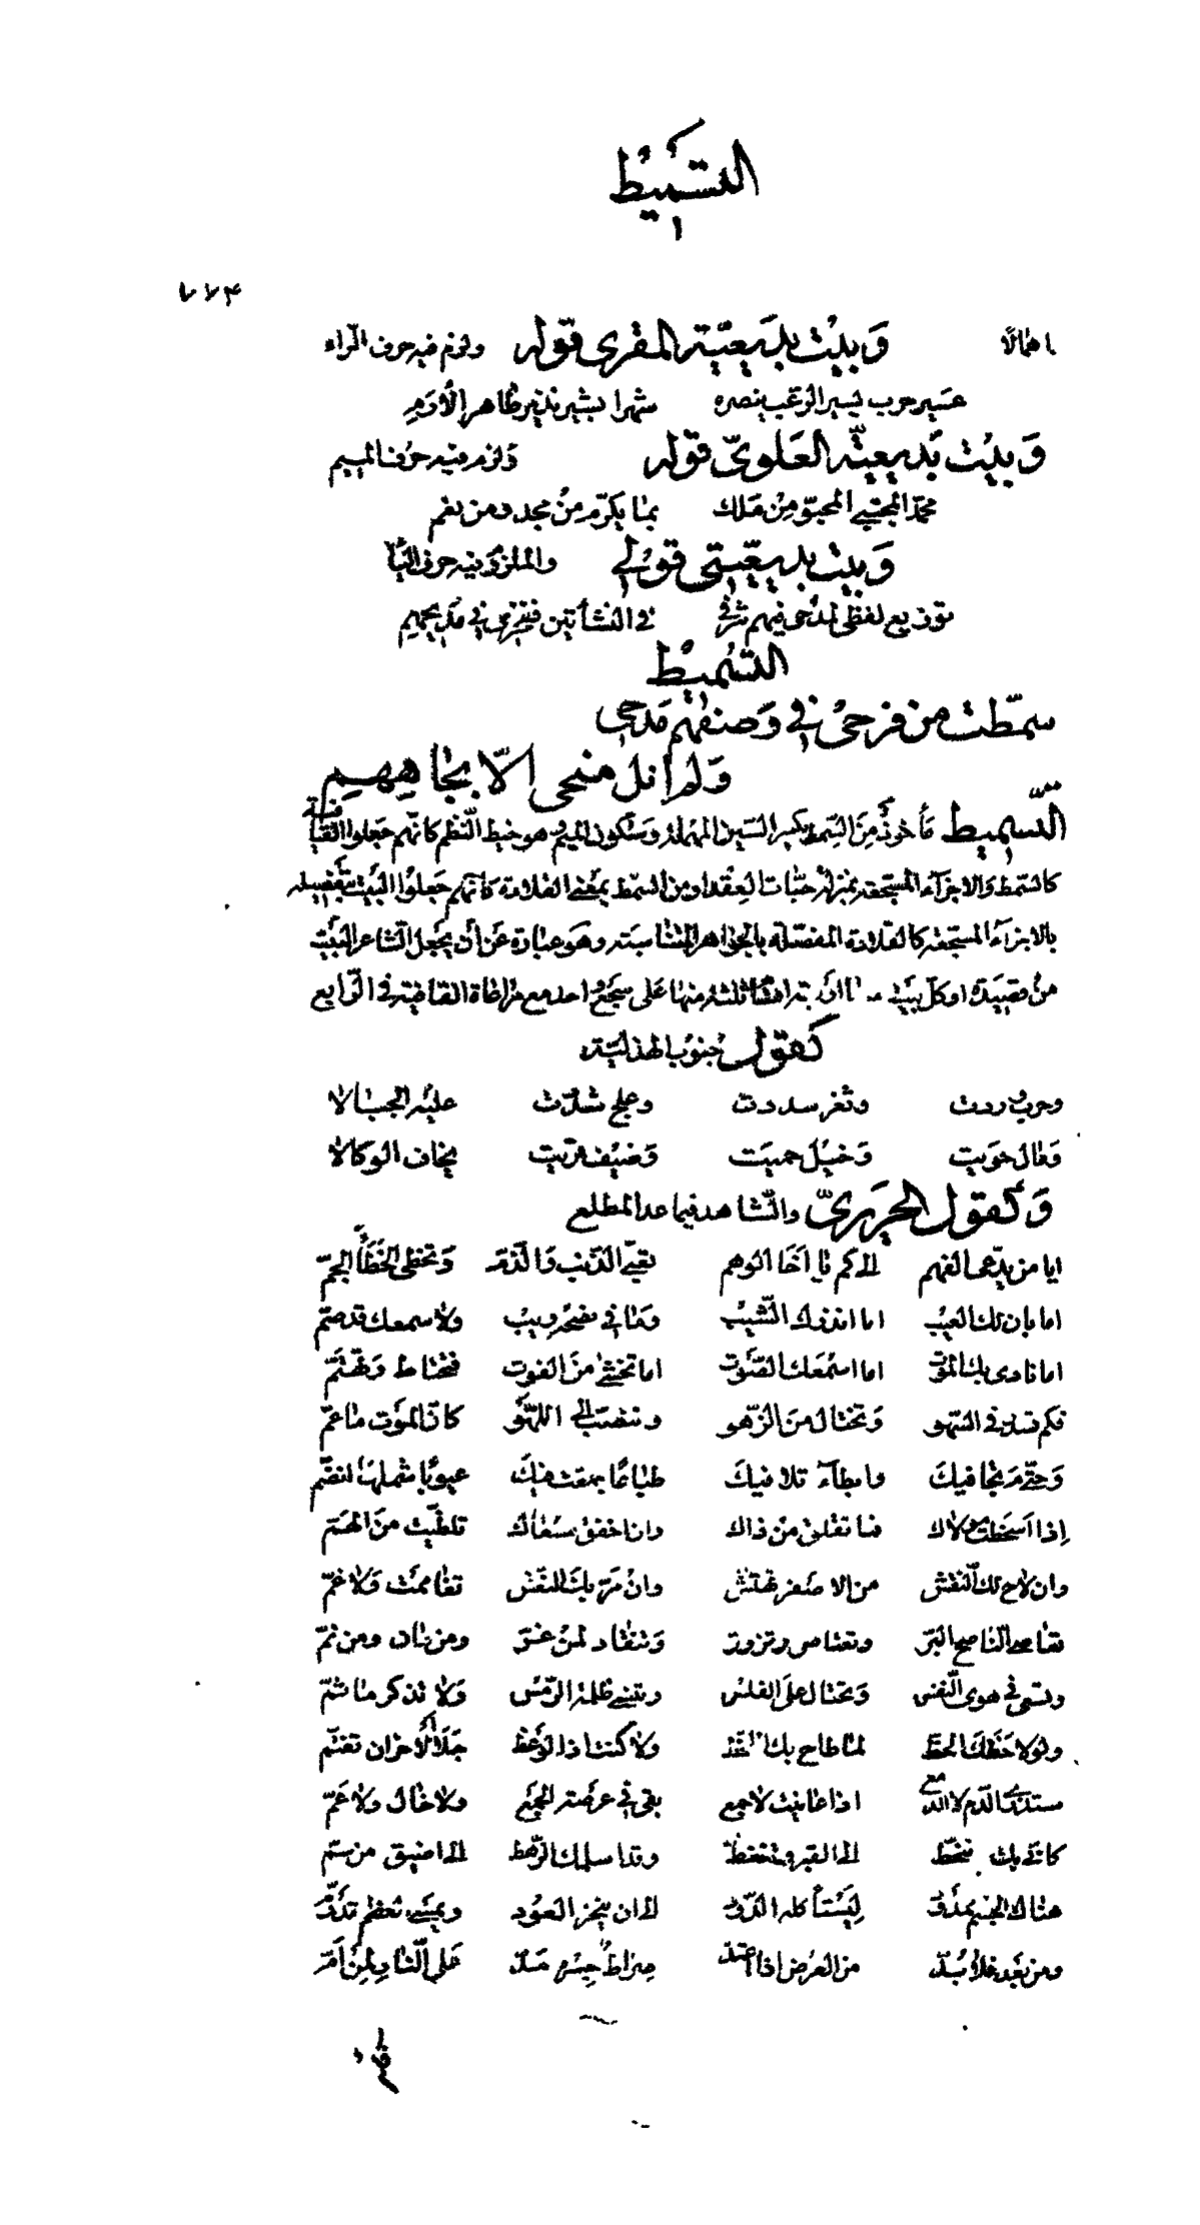 التسميط
٧٧٤
اهمالا وبيت بديعية المقرى قوله ولزم فيه حرف الراء
عسير حرب يسير الرعب ينصره شهرا بشير نذير ظاهر الأدم
وبيت بديعية العلوى قوله ولزم فيه حرف الميم
محمد المجتبى المحبو من ملك بما يكرم من مجد ومن نعم
وبيت بديعيتى قولى والملزوم فيه حرف الياء
توزيع لفظى لمدحى فيهم شرفى فى النشأتين ففخرى فى مديحهم
التسميط
سمطت من فرحى فى وصفهم مدحى
ولم انل منحى الا بجاههم
التسميط مأخوذ من السمط بكسر السين المهملة وسكون الميم وهو خيط النظم كانهم جعلوا القافية
كالسمط والاجزاء المسجعة بمنزلة حبات العقد او من السمط بمعنى القلادة كانهم جعلوا البيت بتفصيله
بالاجزاء المسجعة كالقلادة المفصلة بالجواهر المتناسبة وهو عبارة عن أن يجعل الشاعر البيت
من قصيدة او كل بيت اربعة اقسام ثلثة منها على سجع واحد مع مراعاة القافية فى الرابع
كقول جنوب الهذلية
وحرب وردت وثغر سددت وعلج شددت عليه الحبالا
ومال حويت وخيل حميت وضيف قريت يخاف الوكالا
وكقول الحريرى والشاهد فيما عدا المطلع
ايا من يدعى الفهم الى كم يا اخا الوهم تعبى الذنب والذم وتخطى الخطأ الجم
اما بان لك العيب اما انذرك الشيب وما فى نصحه ريب ولا سمعك قد صم
اما نادى بك الموت اما اسمعك الصوت اما تخشى من الفوت فتحتاط وتهتم
فكم تسدر فى السهو وتختال من الزهو وتنصب الى اللهو كان الموت ما عم
وحتى م تجافيك وابطاء تلافيك طباعا جمعت فيك عيوبا شملها انضم
اذا اسخطت مولاك فما تقلق من ذاك وان اخفق مسعاك تلظيت من الهم
وان لاح لك النقش من الاصفر تهتش وان مر بك النعش تغاممت ولا غم
تعاصى الناصح البر وتعتاص وتزور وتنقاد لمن غر ومن مان ومن نم
وتسعى فى هوى النفس وتحتال على الفلس وتنسى ظلمة الرمس ولا تذكر ما ثم
ولو لاحظك الحظ لما طاح بك اللحظ ولا كنت اذا الوعظ جلا الاحزان تغتم
ستذرى الدم لا الدمع اذا عاينت لا جمع يقى فى عرصة الجمع ولا خال ولا عم
كانى بك تنحط الى القبر وتنغط وقد اسلمك الرهط الى اضيق من سم
هناك الجسم ممدود ليستأكله الدود الى ان ينخر العود ويمسى العظم قد رم
ومن بعد فلا بد من العرض اذا اعتد صراط جسره مد على النار لمن أم